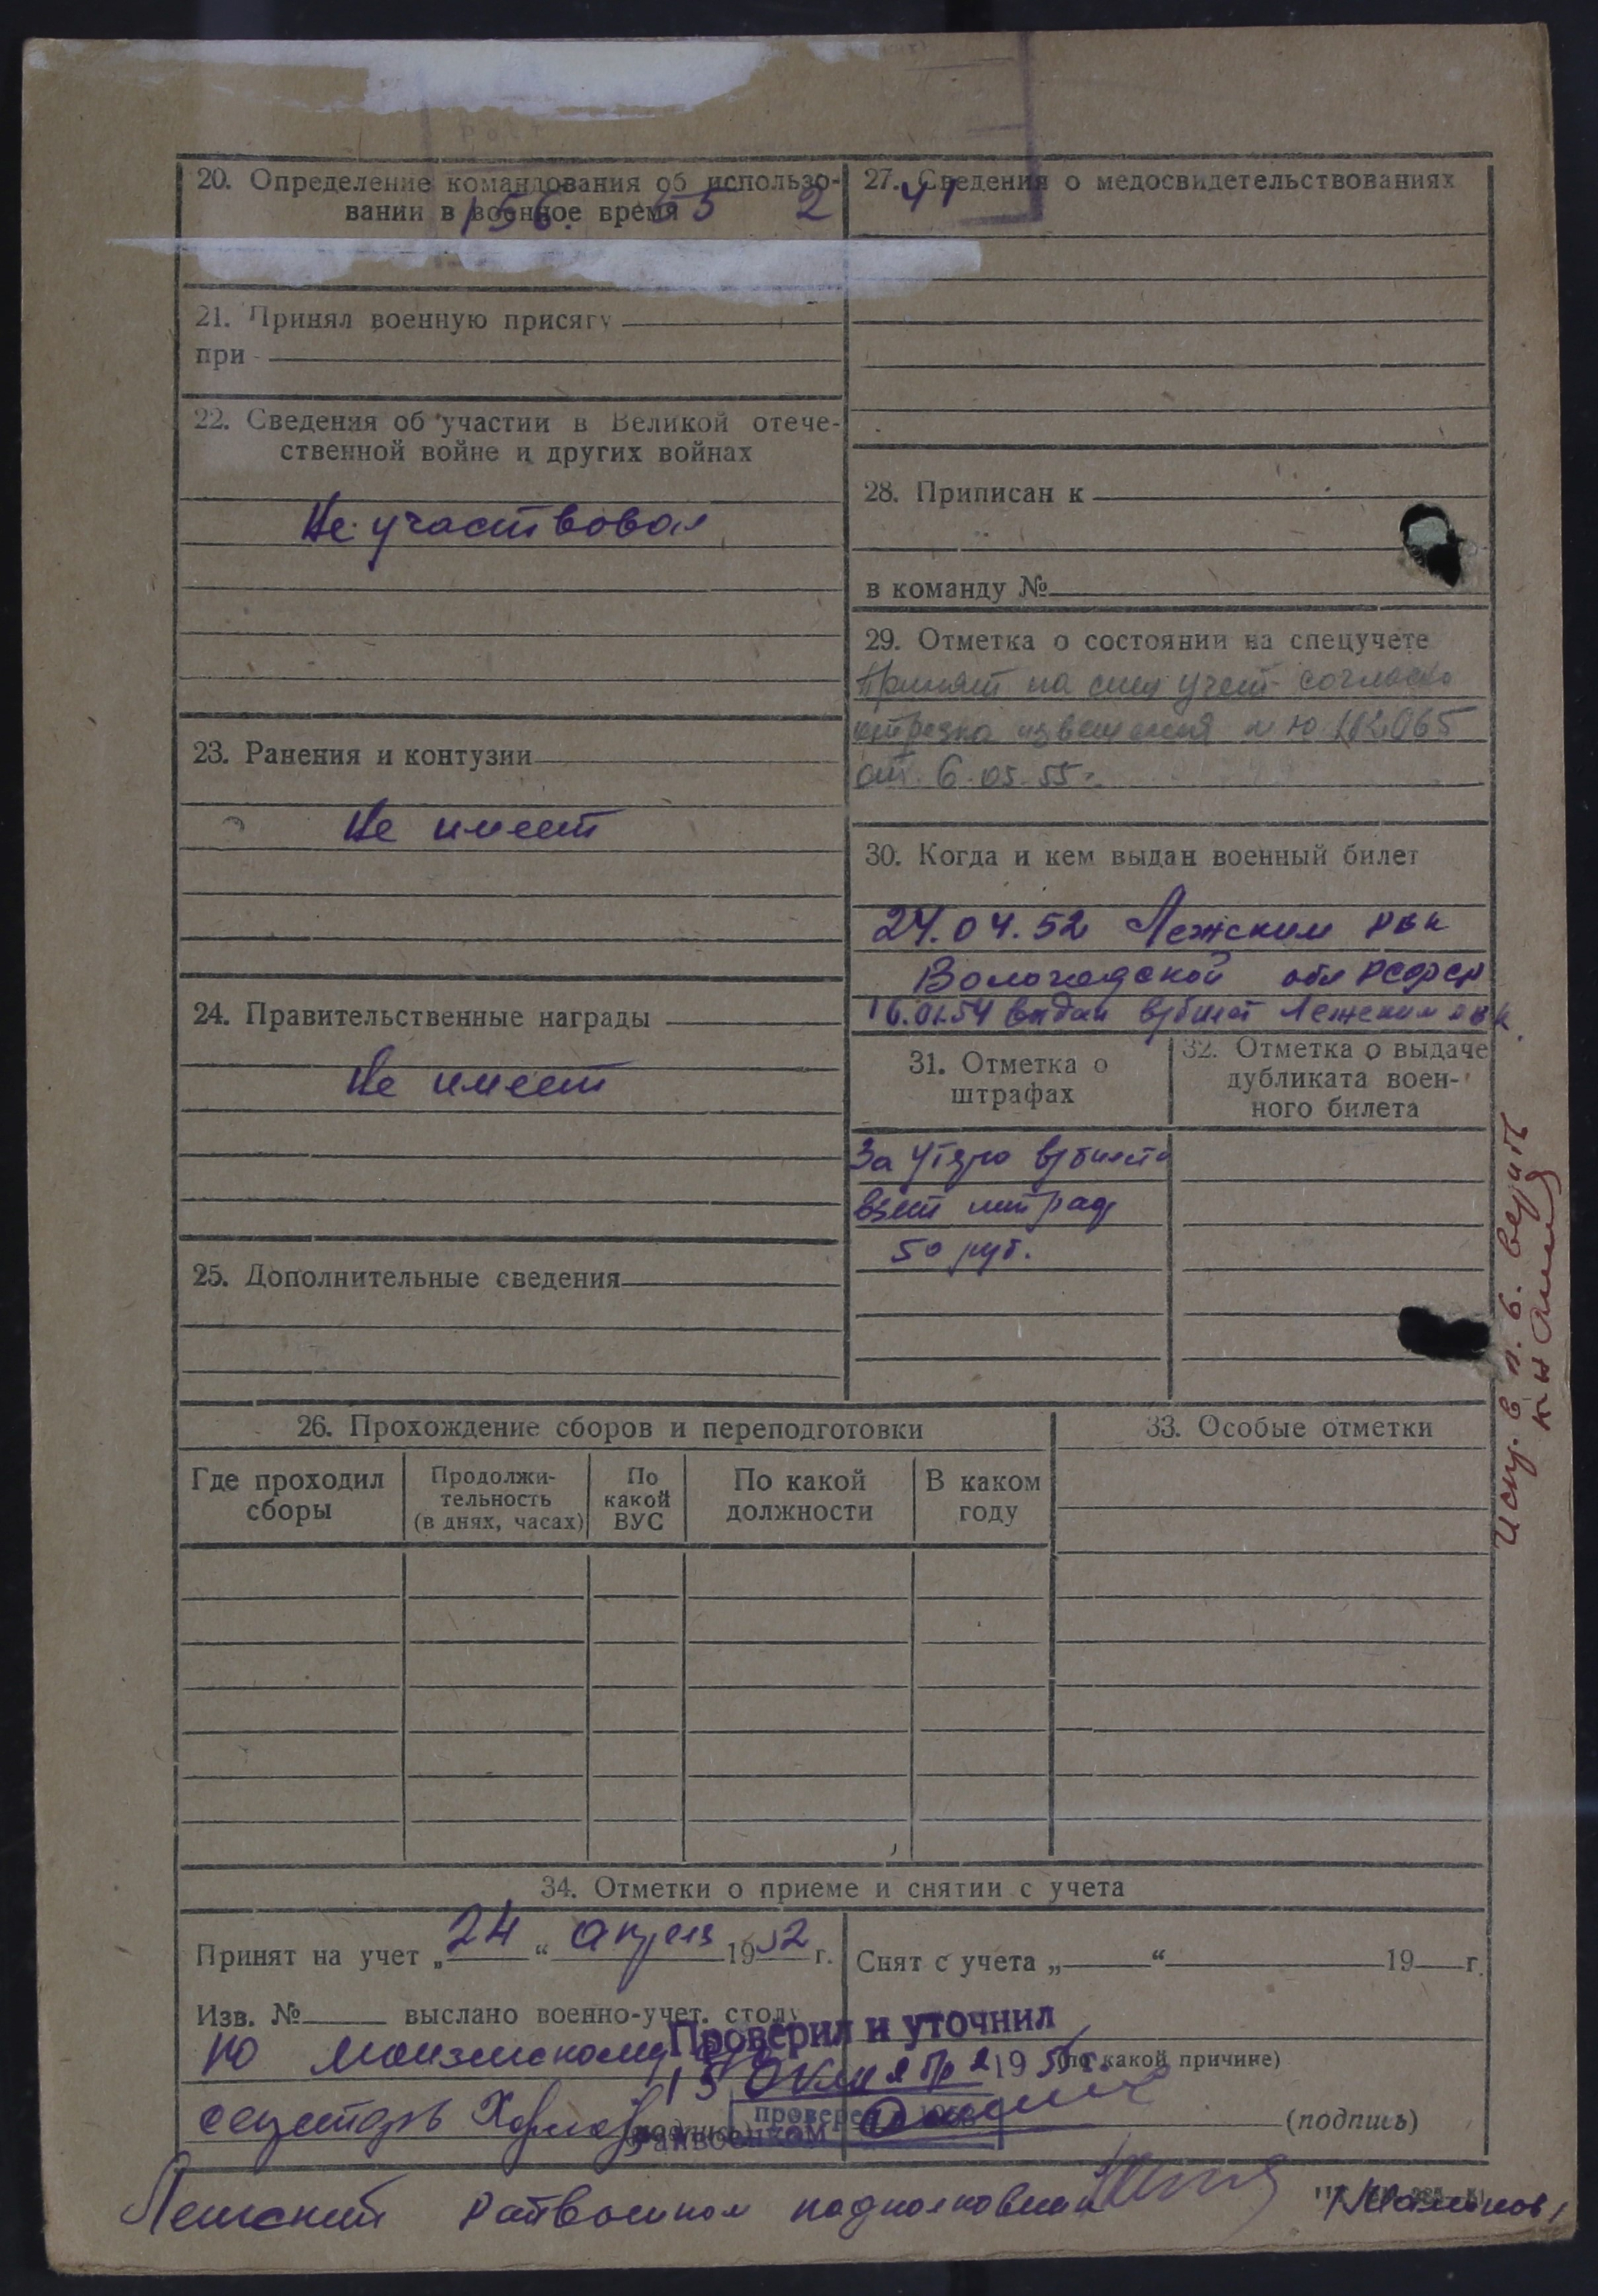 20. Определение командования об использо-
вании в военное время
156. 55 2 41
21. Принял военную присягу
при
22. Сведения об участии в Великой отече-
ственной войне и других войнах
Не участвовал
23. Ранения и контузии
Не имеет
24. Правительственные награды
Не имеет
25. Дополнительные сведения
27. Сведения о медосвидетельствованиях
28. Приписан к
в команду №
29. Отметка о состоянии на спецучете
Принят на спец учет согласно
отрезка извещения
от 6.05.55г.
30. Когда и кем выдан военный билет
24.04.52 Лежским РВК
Вологодской обл РСФСР
16.01.54 выдан в/билет Лежским РВК
31. Отметка о
штрафах
За утерю в/билета
взят штраф
50 руб.
32. Отметка о выдаче
дубликата воен-
ного билета
Испр. в п. 6. верить
26. Прохождение сборов и переподготовки
Где проходил
сборы
Продолжи-
тельность
(в днях, часах)
По
какой
ВУС
По какой
должности
В каком
году
33. Особые отметки
34. Отметки о приеме и снятии с учета
Принят на учет „24“ апреля 1952 г.
Изв. № выслано военно-учет. столу
по
секретарь
Снят с учета „ “ 19 г.
(по какой причине)
(подпись)
Проверил и уточнил
15 октября 1956 г.
проверен
Райвоенком
Лежский Райвоенком подполковник /Мамонов/